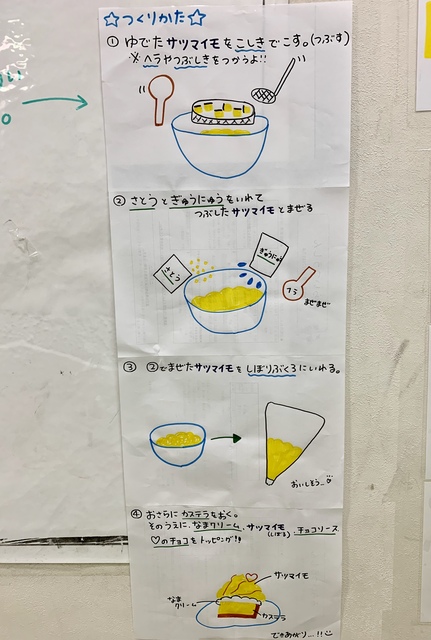 ☆つくりかた☆
① ゆでたサツマイモをこしきでこす。(つぶす)
※ヘラやつぶしきをつかうよ!!
② さとうとぎゅうにゅうをいれて
つぶしたサツマイモとまぜる
さとう
ぎゅうにゅう
ヘラ
まぜまぜ
③ ②でまぜたサツマイモをしぼりぶくろにいれる。
おいしそう
④ おさらにカステラをおく。
そのうえに、なまクリーム、サツマイモ(しぼる)、チョコソース、
♡のチョコをトッピング!!
サツマイモ
なまクリーム
カステラ
できあがり…!!